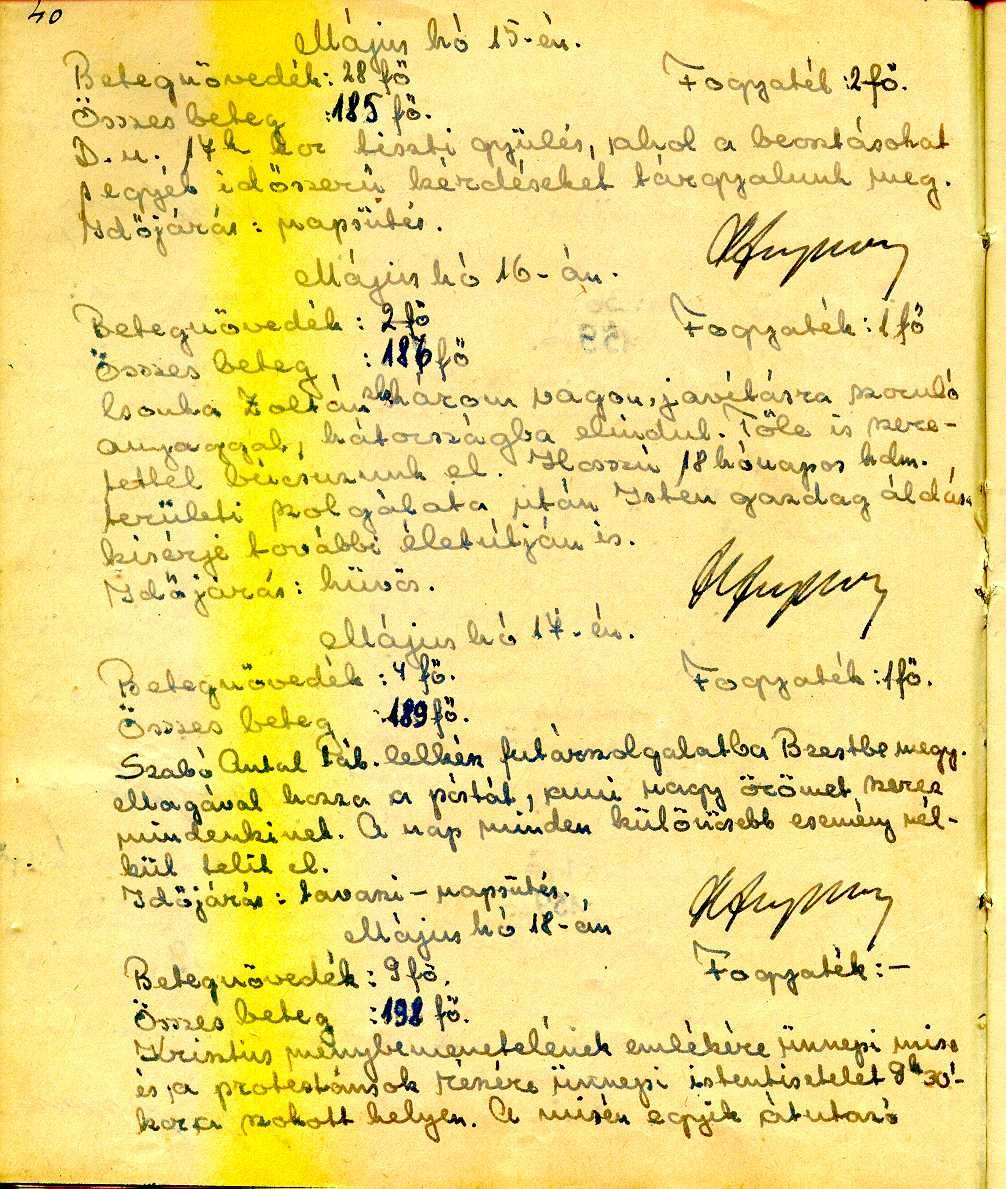 40
Május hó 15-én.
Betegnövedék: 28 fő Fogyaték: 2 fő.
Összes beteg : 185 fő.
D. u. 17h kor tiszti gyülés, ahol a beosztásokat
s egyéb időszerű kérdéseket tárgyalunk meg.
Időjárás: napsütés.
Május hó 16-án.
Betegnövedék: 2 fő Fogyaték: 1 fő
Összes beteg : 186 fő
Csonka Zoltán három vagon, javításra szoruló
anyaggal, hátországba elindul. Tőle is szere-
tettel búcsuzunk el. Hosszú 18 hónapos hdm.
területi szolgálata után Isten gazdag áldása
kisérje további életútján is.
Időjárás: hüvös.
Május hó 17-én.
Betegnövedék: 4 fő. Fogyaték: 1 fő.
Összes beteg : 189 fő.
Szabó Antal táb. lelkész futárszolgalatba Bzestbe megy.
Magával hozza a póstát, ami nagy örömet szerez
mindenkinet. A nap minden különösebb esemény nél-
kül telit el.
Időjárás: tavaszi - napsütés.
Május hó 18-án
Betegnövedék: 9 fő. Fogyaték: -
Összes beteg : 198 fő.
Krisztus mennybemenetelének emlékére ünnepi mise
és a protestánsok részére ünnepi istentisztelet 8h 30'-
kor a szokott helyen. A misén egyik átutazó